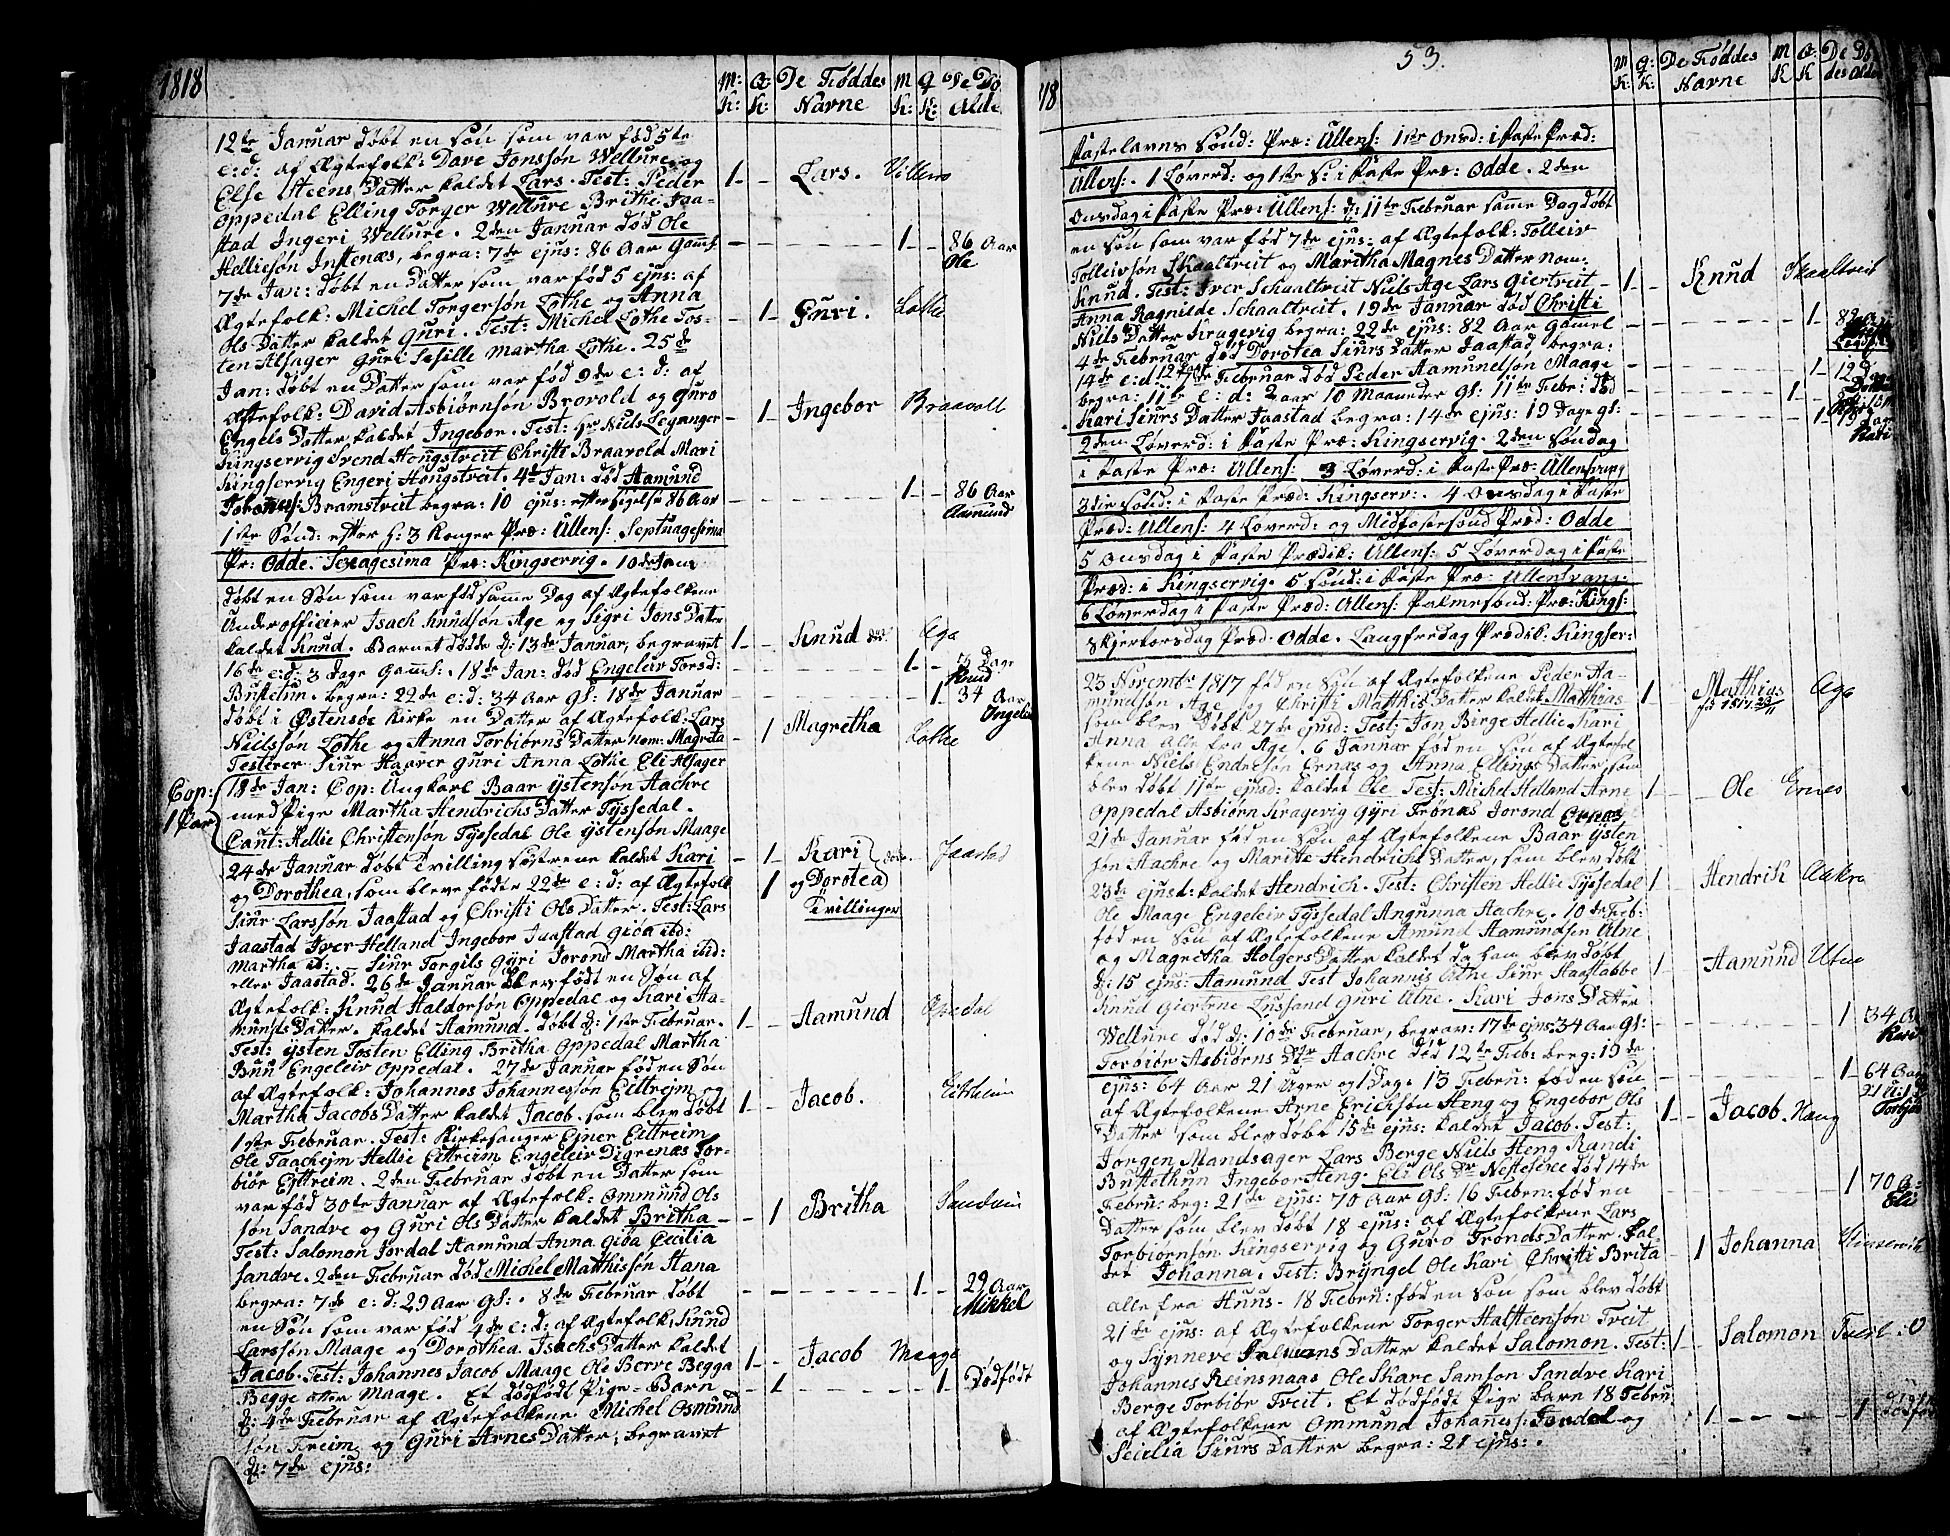 1818
M: K: Q: K: De Føddes Navne M K Q K: De Dø Alde
12te Januar døbt en søn som var fød 5te
e: d: af Ægtefolk: Dave Jonssøn Wellure og
Else Steens Datter kaldet Lars. Test: Peder 1 - - Lars. Villure
Oppedal Elling Torger Wellure Brithe Jaa-
stad Ingeri Wellure. 2den Januar død Ole
Helliesøn Instenæs, begra: 7de ejus: 86 Aar Gaml: 1 - - 86 Aar Ole
7de Jan: døbt en Datter som var fød 5 ejus: af
Ægtefolk: Michel Torgersøn Lothe og Anna - 1 - Guri. Lothe
Ols Datter kaldet Guri. Test: Michel Lothe Tos-
ten Alsager Guri Sesille Martha Lothe. 25de
Jan: døbt en Datter som var fød 9de e: d: af
Ægtefolk: David Asbiørnsøn Brovold og Guro - 1 - Ingebor Braavoll
Engels Datter kaldet Ingebor. Test: Hr Niels Leganger
Kingservig Svend Hougstveit Christi Braavold Mari
Kingservig Engeri Hougstveit. 4de Jan: død Aamund
Johanes: Bramstveit begra: 10 ejus: efter sigelse 86 Aar 1 - - 86 Aar Aamund
1ste Sønd: efter H: 3 Konger Præ: Ullens: Septuagesima
Pr: Odde. Sexagesima Præ: Kingservig. 10de Jan:
døbt en Søn som var fød samme Dag af Ægtefolkene
Underofficier Isach Knudsøn Age og Sigri Jons Datter
kaldet Knud. Barnet døde d: 13de Januar, begravet 1 - - Knud død Aga
16de e: d: 3 Dage Gaml: 18de Jan: død Engeleiv Torsd: 1 - - 3 Dage Knud
Bustetun. begra: 22de e: d: 34 Aar Gl: 18de Januar 1 - 34 Aar Ingeleiv
døbt i Østensøe Kirke en Datter af Ægtefolk: Lars
Nielssøn Lothe og Anna Torbiørns Datter nom: Magreta - 1 Magretha Lothe
Testerer Siur Haaver Guri Anna Lothe Eli Alsager
Cop: 1 Par
18de Jan: Cop: Ungkarl Baar ÿstensøn Aachre
med Pige Martha Hendrichs Datter Tÿssedal.
Caut: Hellie Christensøn Tÿssedal Ole ÿstensøn Maage
24de Januar døbt Tvilling søstrene kaldet Kari - 1 - Kari døde. Jaastad
og Dorothea, som bleve fødte 22de e: d: af Ægtefolk 1 og Dorotea
Siur Larssøn Jaastad og Christi Ols Datter. Test: Lars Tvillinger
Jaastad Iver Helland Ingebor Jaastad Gioa ibd:
Martha ib: Siur Torgils Gÿri Jorond Martha ibid:
eller Jaastad. 26de Januar blev født en Søn af
Ægtefolk: Knud Haldorsøn Oppedal og Kari Aa-
munds Datter. kaldet Aamund. døbt d: 1ste Februar. 1 - - Aamund Opedal
Test: ÿsten Tosten Elling Britha Oppedal Martha
Buu Engeleiv Oppedal. 27de Januar fød en Søn
af Ægtefolk: Johannes Johannessøn Eittreim og
Martha Jacobs Datter kaldet Jacob. som blev døbt 1 - - Jacob. Eitheim
1ste Februar. Test: Kirkesanger Ejner Eittreim
Ole Taacheim Hellie Eittreim Engeleiv Digrenæs Tor-
biør Eittreim. 2den Februar døbt en Datter som
var fød 30te Januar af Ægtefolk: Ommund Ols
søn Sandve og Guri Ols Datter kaldet Britha - - 1 - Britha Sandvin
Test: Salomon Jordal Aamund Anna Gioa Cecilia
Sandve. 2den Februar død Michel Matthissøn Hana
begra: 7de e: d: 29 Aar Gl:. 8de Februar døbt 1 - - 29 Aar Mikkel
en søn som var fød 4de e: d: af Ægtefolk: Knud
Larssøn Maage og Dorothea Isachs Datter kaldet
Jacob. Test: Johannes Jacob Maage Ole Berve Begga 1 - - Jacob Maage
Begge atter Maage. Et dødfødt Pige-Barn - 1 - 1 - Dødfødt
d: 4de Februar af Ægtefolkene Michel Osmund
søn Freim og Guri Arnes Datter, begravet
d: 7de ejus:
53.
18
M K: Q: K: De Føddes Navne M K Q K De Dø des Alder
Fastelavns Sønd: Præ: Ullens: 1ste Onsd: i Faste Præd:
Ullens:. 1 Løverd: og 1ste S: i Faste Præ: Odde. 2den
Onsdag i Faste Præ: Ullens: d: 11te Februar samme Dag døbt
en søn som var fød 7de ejus: af Ægtefolk: Tolleiv
Tolleivsøn Skaaltveit og Maritha Magnes Datter nom:
Knud. Test: Iver Schaaltveit Niels Age Lars Giertveit - 1 - - Knud Skaaltveit
Anna Ragnilde Schaaltveit. 19de Januar død Christi
Niels Datter Kragevig begra: 22de ejus: 82 Aar Gamel 1 - 82 a.
4de Februar død Dorotea Siurs Datter Jaastad begra:
14de e: d: 12 Dage Februar død Peder Aamundsøn Maage 1 12 d
begra: 11te e: d: 2 aar 10 Maaneder Gl: 11te Febr: død 1
Kari Siurs Datter Jaastad begra: 14de ejus: 19 Dage Gl: 1 - 19 Dage Kari
2den Løverd: i Faste Præ: Kingservig. 2den Søndag
i Faste Præ: Ullens: 3 Løverd: i Faste Præ: Ullensvang
3die Sønd: i Faste Præd: Kingserv:. 4 Onsdag i Faste
Præd: Ullens: 4 Løverd: og Midfastesønd Præd: Odde
5 Onsdag i Faste Prædik: Ullens: 5 Løverdag i Faste
Præd: i Kingservig. 5 Sønd: i Faste Præ: Ullensvang:
6 Løverdag i Faste Præd: Ullens: Palmesønd: Præ: Kings:
Skjertorsdag Præd: Odde. Langfredag Prædik: Kingser:
23 Novembr 1817 fød en Søn af Ægtefolkene Peder Aa-
mundsøn Age og Christi Matthis Datter kaldet Matthias 1 - Matthias Aga
som blev døbt 27de ejusd: Test: Jon Birge Hellie Kari fød 1817 23/11
Anna alle fra Age. 6 Januar fød en søn af Ægtefol
kene Niels Endresøn Ernæs og Anna Ellings Datter, som
blev døbt 11te ejusd: kaldet Ole Test: Michel Helland Arne 1 - - Ole Ernes
Oppedal Asbiørn Kragevig Gÿri Trønæs Jorond Ernæs
21de Januar fød en søn af Ægtefolkene Baar ÿsten
søn Aachre og Marite Hendrichs Datter, som blev døbt
23de ejusd: kaldet Hendrich. Test: Christen Hellie Tÿssedal 1 - - Hendrik Aakre
Ole Maage Engeleiv Tÿssedal Angunna Aachre. 10de Feb:
fød en søn af Ægtefolkene Amund Aamundsen Utne
og Magretha Holgers Datter kaldet da han blev døbt
d: 15 ejus: Aamund Test Johannis Lothe Siur Haastabbe 1 - Aamund Utne
Knud Giertne Liusand Guri Utne. Kari Jons Datter
Wellure død d: 10de Februar, begrav: 17de ejus: 34 Aar Gl: 1 34 A Kari
Torbiør Asbiørns Dtr Aachre død 12te Feb: berg: 19de
ejus: 64 Aar 21 Uger og 1 Dag: 13 Febru: fød en søn 1 - 64 Aar 21 U: 1 D Torbjør
af Ægtefolkene Arne Erichsøn Heng og Engebor Ols
Datter som blev døbt 15de ejus: kaldet Jacob. Test: 1 - Jacob. Haug
Jørgen Mandsager Lars Berge Niels Heng Randi
Bustethun Ingebor Heng. Eli Ols Dr Nestesere død 14de
Febru: beg: 21de ejus: 70 Aar Gl: 16 Febru: fød en 1 70 A: Eli
Datter som blev døbt 18 ejus: af Ægtefolkene Lars
Torbiørnsøn Kingservig og Guro Tronds Datter. kal-
det Johanna. Test: Brÿngel Ole Kari Christi Brita - 1 Johanna Kinservik
alle fra Huus. 18 Febru: fød en søn som blev døbt
21de ejus: af Ægtefolkene Torger Halsteensøn Treit
og Sÿnneve Datter kaldet Salomon. Test: 1 - Salomon
Johannes Reinsnaas Ole Skare Samson Sandve Kari
Berge Torbiør Treit. Et dødfødt Pige barn 18 Febru:
af Ægtefolkene Ommund Johanes: Jordal og 1 - - - - 1 dødfød
Secilia Siurs Datter begra: 21 ejus:.